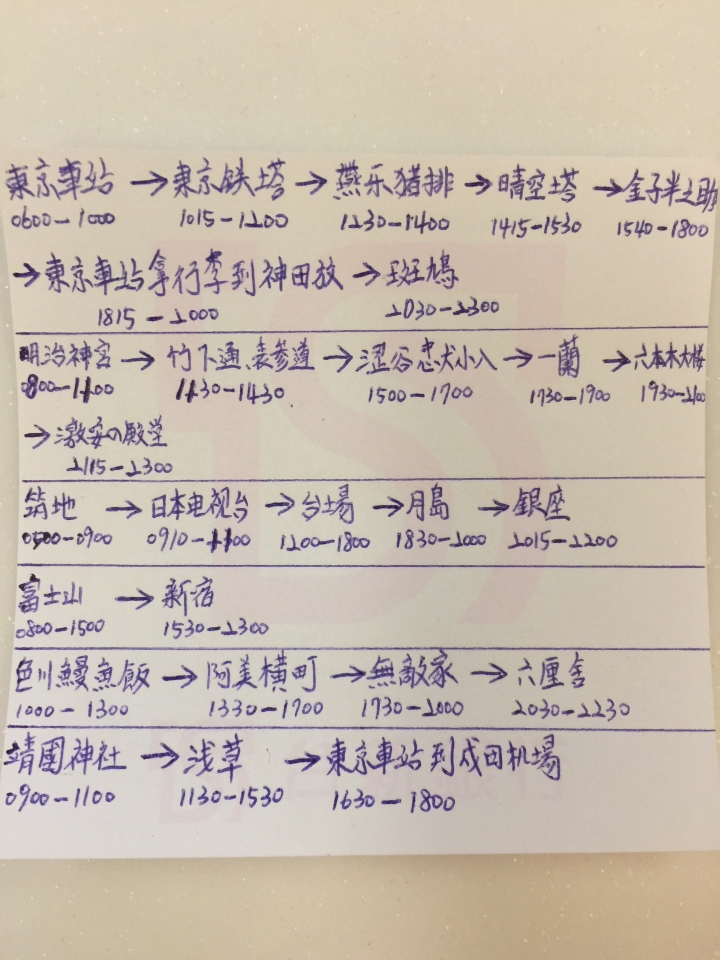 東京車站 → 東京铁塔 → 燕乐猪排 → 晴空塔 → 金子半之助
0600-1000 1015-1200 1230-1400 1415-1530 1540-1800
→ 東京車站拿行李到神田放 → 斑鳩
1815-2000 2030-2300
明治神宮 → 竹下通、表参道 → 涩谷忠犬小八 → 一蘭 → 六本木大楼
0800-1100 1130-1430 1500-1700 1730-1900 1930-2100
→ 激安の殿堂
2115-2300
筑地 → 日本电视台 → 台場 → 月島 → 銀座
0500-0900 0910-1100 1200-1800 1830-2000 2015-2200
富士山 → 新宿
0800-1500 1530-2300
色川鰻魚飯 → 阿美横町 → 無敵家 → 六厘舍
1000-1300 1330-1700 1730-2000 2030-2230
靖國神社 → 浅草 → 東京車站到成田机場
0900-1100 1130-1530 1630-1800